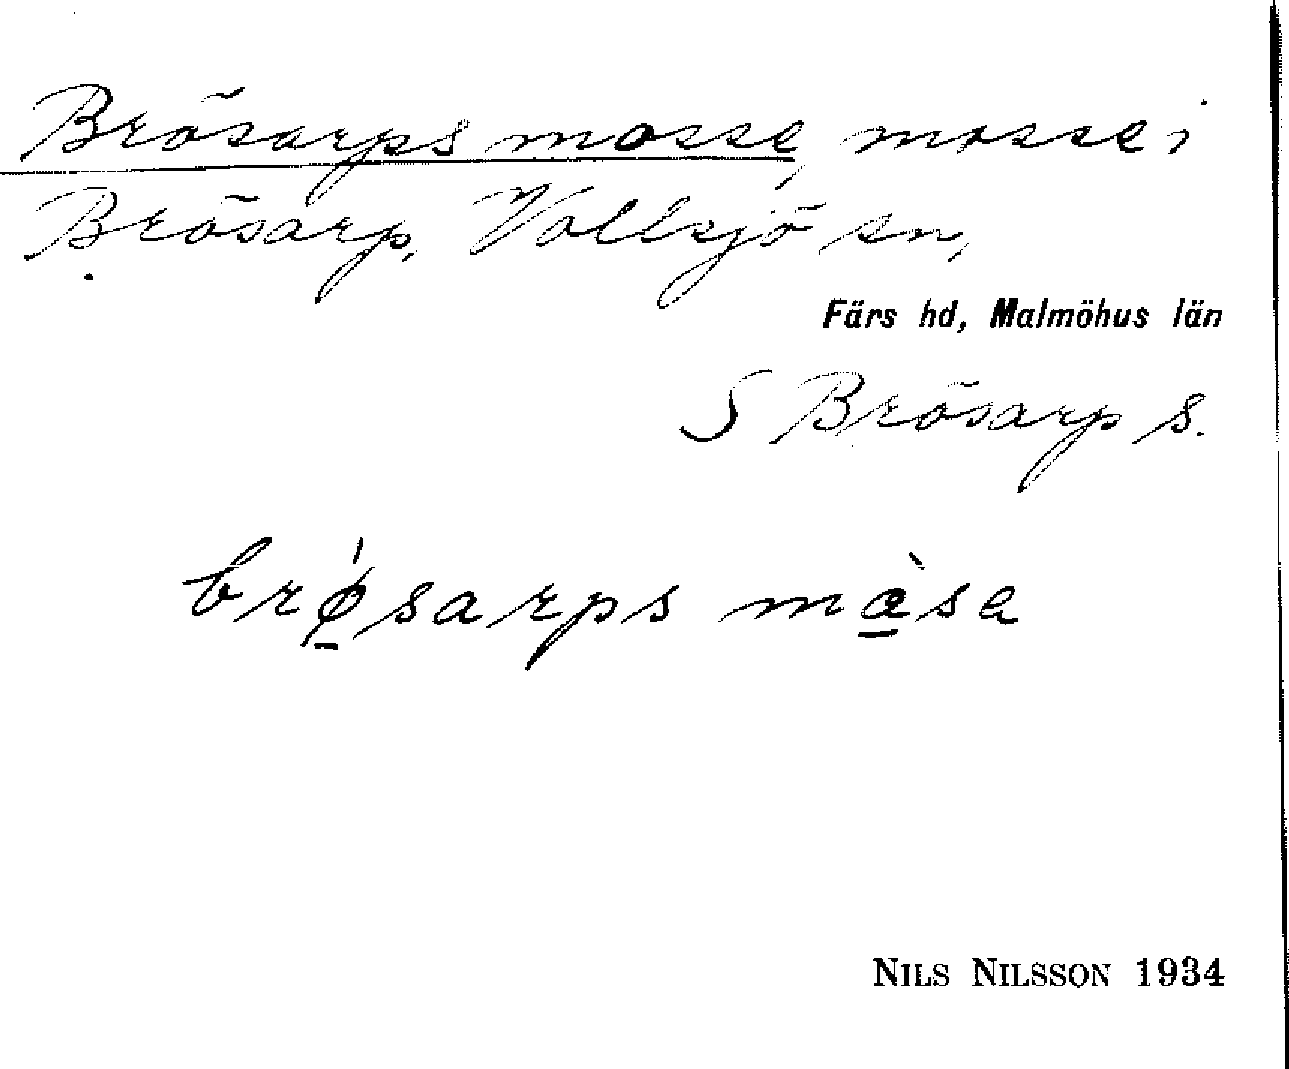 Brösarps mosse, mosse i
Brösarp, Vollsjö sn,
Färs hd, Malmöhus län
S Brösarp s.
brǿ̱sarps mò̱sa
NILS NILSSON 1934